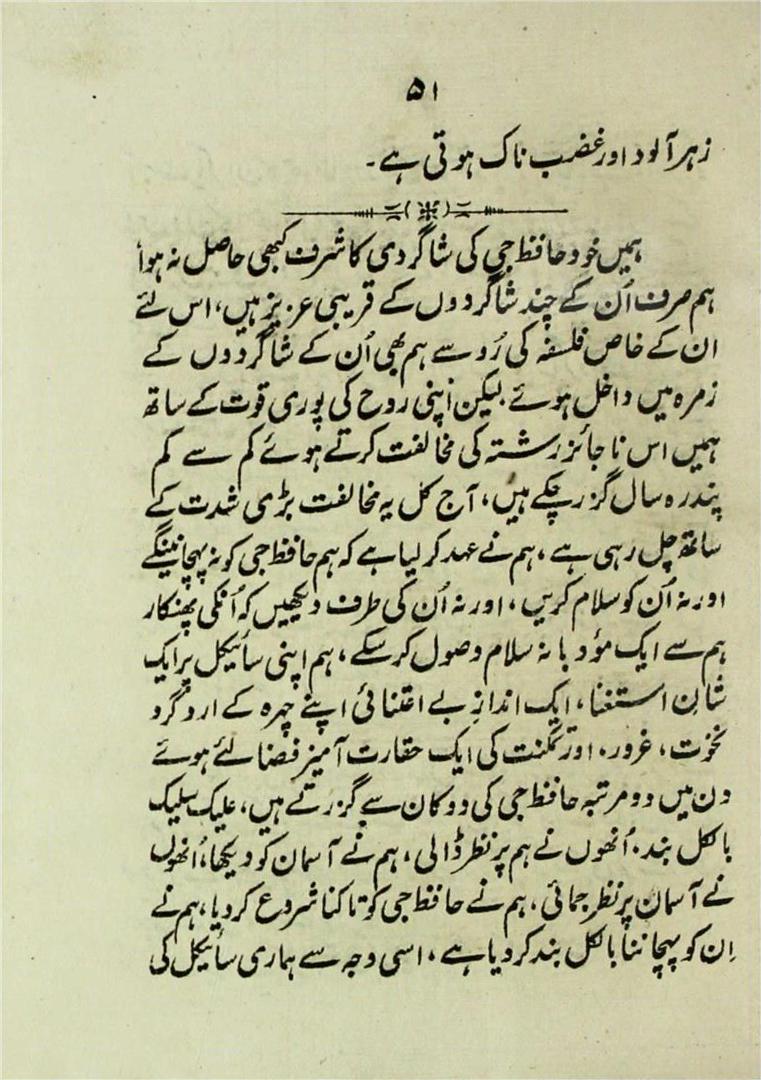 ۵۱
زہر آلود اور غضب ناک ہوتی ہے۔
ہمیں خود حافظ جی کی شاگردی کا شرف کبھی حاصل نہ ہوأ
ہم صرف اُن کے چند شاگردوں کے قریبی عزیز ہیں، اس لئے
ان کے خاص فلسفہ کی رُو سے ہم بھی اُن کے شاگردوں کے
زمرہ میں داخل ہوئے لیکن اپنی روح کی پوری قوت کے ساتھ
ہمیں اس ناجائز رشتہ کی مخالفت کرتے ہوئے کم سے کم
پندرہ سال گزر چکے ہیں، آج کل یہ مخالفت بڑی شدت کے
ساتھ چل رہی ہے، ہم نے عہد کر لیا ہے کہ ہم حافظ جی کو نہ پہچانینگے
اور نہ اُن کو سلام کریں، اور نہ اُن کی طرف دیکھیں کہ اُنکی پھنکار
ہم سے ایک مؤدبانہ سلام وصول کر سکے، ہم اپنی سائیکل پر ایک
شانِ استغنا، ایک اندازِ بے اعتنائی اپنے چہرہ کے ارد گرد
نخوت، غرور، اور تمکنت کی ایک حقارت آمیز فضا لئے ہوئے
دن میں دو مرتبہ حافظ جی کی دوکان سے گزرتے ہیں، علیک سلیک
بالکل بند۔ اُنھوں نے ہم پر نظر ڈالی، ہم نے آسمان کو دیکھا، اُنھوں
نے آسمان پر نظر جمائی، ہم نے حافظ جی کو تاکنا شروع کر دیا، ہم نے
اِن کو پہچاننا بالکل بند کر دیا ہے، اسی وجہ سے ہماری سائیکل کی